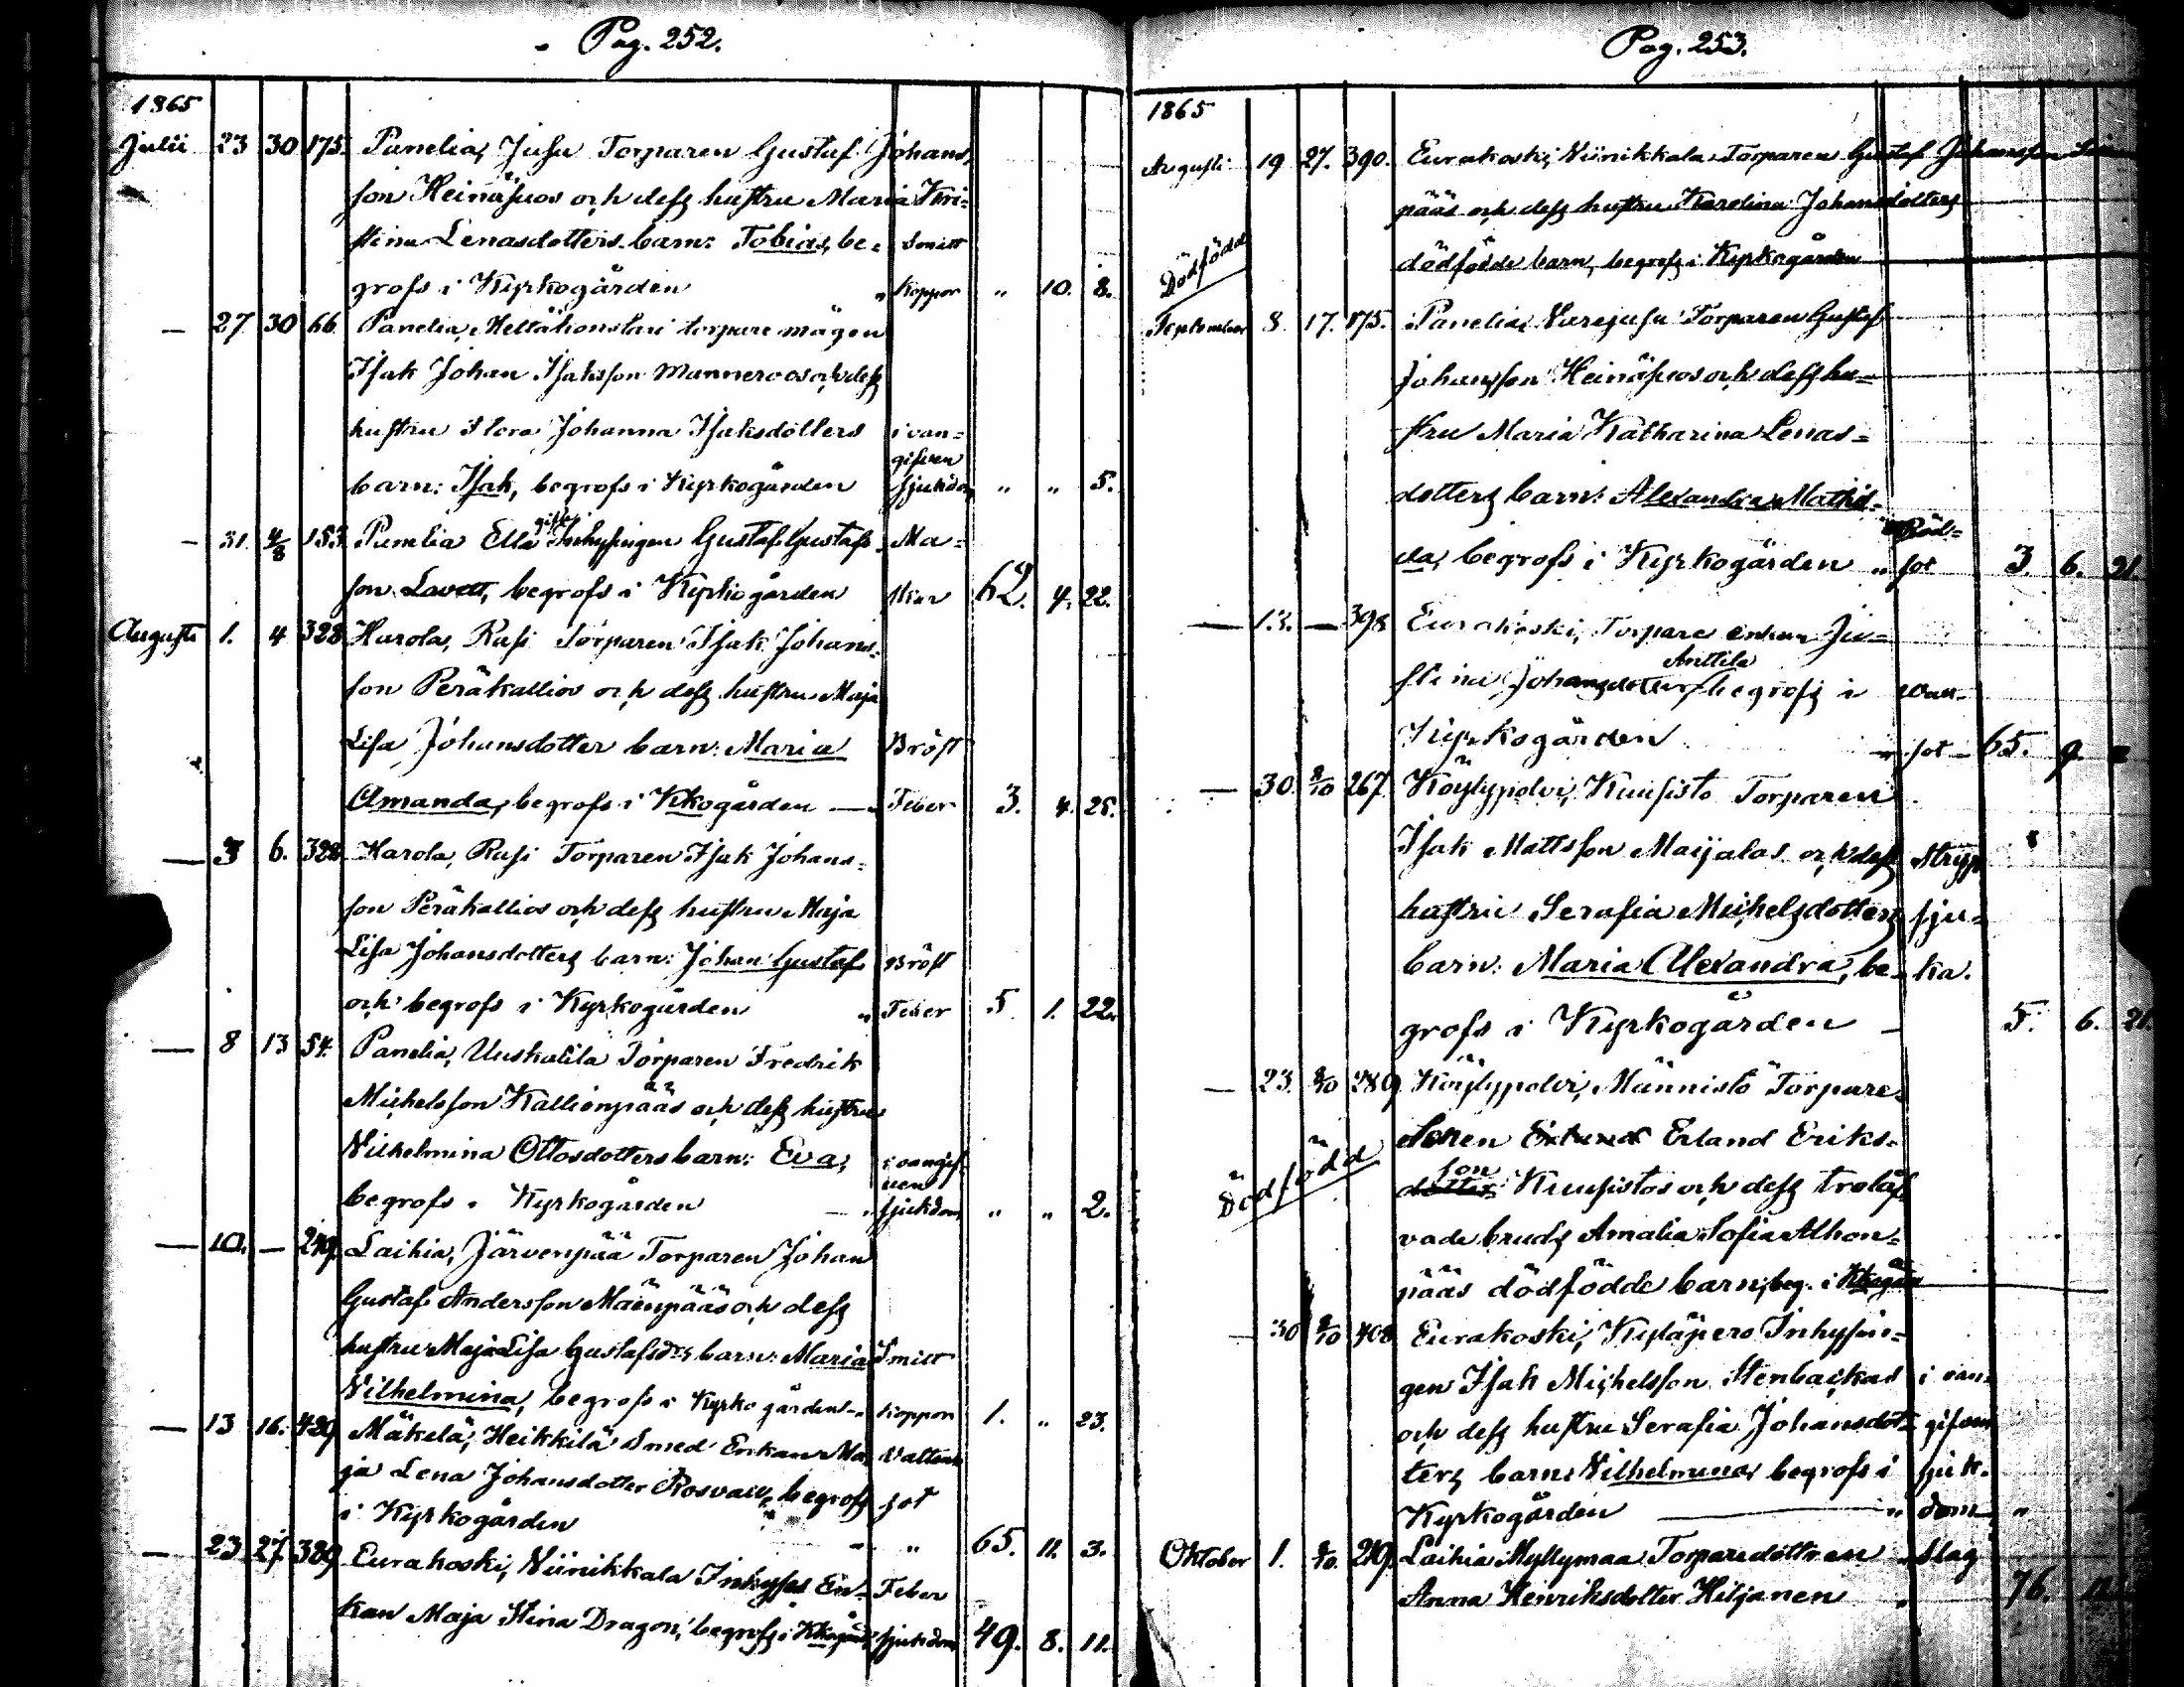 Pag. 252.
1865
Julii 23 30 175. Panelia, Jusu Torparen Gustaf Johans-
son Heinäsuos och dess hustru Maria Kri-
stina Lenasdotters barn: Tobias, be- Smitt
grofs i Kyrkogården " koppor " 10. 8.
— 27 30 66 Panelia, Heltähonstari torpare mågen
Isak Johan Isaksson Manneroos och dess
hustru Flora Johanna Isaksdotters i oan-
gifven
barn: Isak, begrofs i Kyrkogården sjukdom " " 5.
— 31 4/8 153 Panelia Ella gifte Inhysingen Gustaf Gustafs- Ma-
son Lavett, begrofs i Kyrkogården skar 62. 4. 22.
Augusti 1. 4 328 Harola, Rusi Torparen Isak Johans-
son Peräkallios och dess hustru Maja
Lisa Johansdotter barn: Maria Bröst
Amanda, begrofs i Kkogården — Feber 3. 4. 25.
— 3 6. 328 Harola, Rusi Torparen Isak Johans-
son Peräkallios och dess hustru Maja
Lisa Johansdotters barn: Johan Gustaf Bröst
och begrofs i Kyrkogården " Feber 5 1. 22.
— 8 13 54. Panelia, Uuskalila Torparen Fredrik
Michelsson Kallionpääs och dess hustru
Wilhelmina Ottosdotters barn: Eva, i oangif-
uen
begrofs i Kyrkogården " sjukdom " " 2.
— 10. — 249 Laihia, Järvenpää Torparen Johan
Gustaf Andersson Mäenpääs och dess
hustru Maja Lisa Gustafsdrs barn: Maria Smitt
Wilhelmina, begrofs i Kyrkogården — koppor 1. " 23.
— 13 16. 429 Mäkelä, Heikkilä Smed Enkan Ma- Vatten
ja Lena Johansdotter Rosvall, begrofs sot
i Kyrkogården " 65. 11. 3.
— 23 27. 389 Eurakoski, Niinikkala Inhyses En- Feber
kan Maja Stina Dragon, begrofs i Kkogård. sjukdom 49. 8. 11.
Pag. 253.
1865
Augusti 19 27. 390. Eurakoski, Niinikkala Torparen Gustaf Johansson
pääs och dess hustru Karolina Johansdotters
Dödfödd dödfödde barn, begrofs i Kyrkogården
September 8. 17. 175. Panelia, Narejusu Torparen Gustaf
Johansson Heinäsuos och dess hu-
stru Maria Katharina Lenas-
dotters barn: Alexandra Mathil- Röd-
da, begrofs i Kyrkogården " sot 3. 6. 21.
— 13. — 398 Eurakoski, Torpare enkan Ju-
Anttila
stina Johansdotter begrofs i Watt-
Kyrkogården " sot 65. 9.
— 30 8/10 267 Köylypolvi, Kuusisto Torparen
Isak Mattsson Maijalas och dess Stryp
hustru Serafia Michelsdotters sju-
barn: Maria Alexandra, be- ka.
grofs i Kyrkogården — 5. 6. 21.
— 23. 8/10 289 Köylypolvi, Männistö Torpare-
Sonen Erland Eriks-
Dödfödd son Kuusistos och dess trolåf-
vade bruds Amalia Sofia Alhon-
pääs dödfödde barn, beg. i Kkogård
— 30 8/10 408 Eurakoski, Kyläpero Inhysin-
gen Isak Michelsson Stenbackas i oan-
och dess hustru Serafia Johansdot- gifven
ters barn: Wilhelmina, begrofs i sjuk-
Kyrkogården " dom "
Oktober 1. 8/10. 219. Laihia Myllymaa Torparedottren " Slag
Anna Henriksdotter Hiljanen " 76.